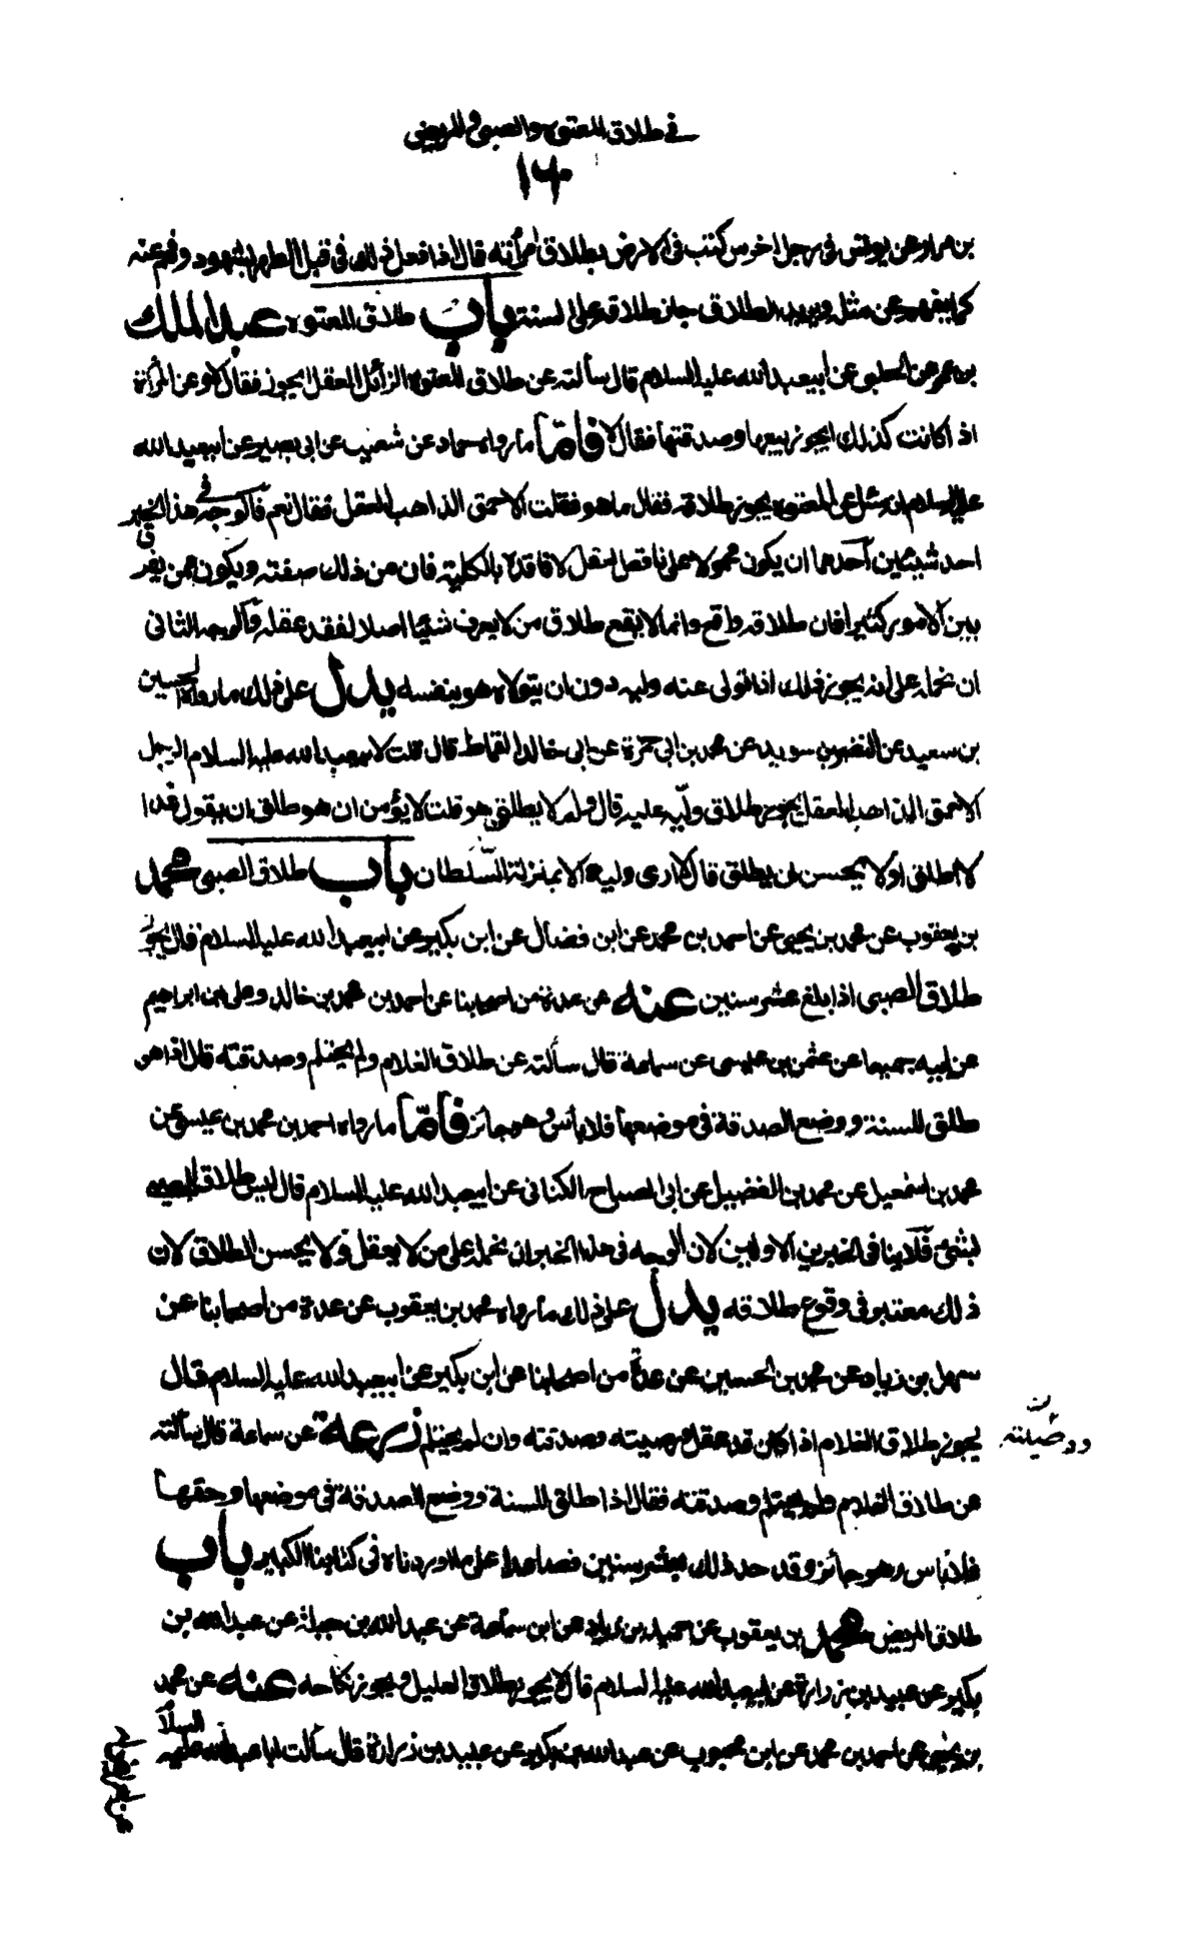 في طلاق المعتوه والصبي والمريض
١٦٠
بن مرار عن يونس في رجل اخرس كتب في الارض بطلاق امرأته قال اذا فعل ذلك في قبل الطهر بشهود وفهم عنه
كما يفهم عن مثله ويريد الطلاق جاز طلاقه على السنة باب طلاق المعتوه عبد الملك
بن عمرو عن الحلبي عن ابيعبد الله عليه السلام قال سألته عن طلاق المعتوه الزائل العقل ايجوز فقال لا وعن المرأة
اذا كانت كذلك ايجوز بيعها وصدقتها فقال لا فامّا ما رواه حماد عن شعيب عن ابي بصير عن ابيعبد الله
عليه السلام انه سئل عن المعتوه يجوز طلاقه فقال ما هو فقلت الاحمق الذاهب العقل فقال نعم فالوجه في هذا الخبر
احد شيئين احدهما ان يكون محمولا على ناقص العقل لا فاقده بالكلية فان من ذلك صفته ويكون ممن يفرق
بين الامور كثيرا فان طلاقه واقع وانما لا يقع طلاق من لا يعرف شيئا اصلا لفقد عقله والوجه الثاني
ان نحمله على انه يجوز ذلك اذا تولى عنه وليه دون ان يتولاه هو بنفسه يدل على ذلك ما رواه الحسين
بن سعيد عن النضر بن سويد عن محمد بن ابي حمزة عن ابي خالد القماط قال قلت لابيعبد الله عليه السلام الرجل
الاحمق الذاهب العقل يجوز طلاق وليّه عليه قال ولم لا يطلق هو قلت لا يؤمن ان هو طلق ان يقول غدا
لا اطلق او لا يحسن ان يطلق قال لا ارى وليه الا بمنزلة السّلطان باب طلاق الصبي محمد
بن يعقوب عن محمد بن يحيى عن احمد بن محمد عن ابن فضال عن ابن بكير عن ابيعبد الله عليه السلام قال يجوز
طلاق الصبي اذا بلغ عشر سنين عنه عن عدة من اصحابنا عن احمد بن محمد بن خالد وعلى بن ابراهيم
عن ابيه جميعا عن عثمن بن عيسى عن سماعة قال سألته عن طلاق الغلام ولم يحتلم وصدقته قال اذا هو
طلق للسنة ووضع الصدقة في موضعها فلا بأس وهو جائز فامّا ما رواه احمد بن محمد بن عيسى عن
محمد بن اسمعيل عن محمد بن الفضيل عن ابي الصباح الكناني عن ابيعبد الله عليه السلام قال ليس طلاق الصبي
بشئ فلا ينافي الخبرين الاولين لان الوجه في هذا الخبر ان نحمله على من لا يعقل ولا يحسن الطلاق لان
ذلك معتبر في وقوع طلاقه يدل على ذلك ما رواه محمد بن يعقوب عن عدة من اصحابنا عن
سهل بن زياد عن محمد بن الحسين عن عدة من اصحابنا عن ابن بكير عن ابيعبد الله عليه السلام قال
يجوز طلاق الغلام اذا كان قد عقل ووصيته وصدقته وان لم يحتلم زرعة عن سماعة قال سألته
عن طلاق الغلام ولم يحتلم وصدقته فقال اذا طلق للسنة ووضع الصدقة في موضعها وحقها
فلا بأس وهو جائز وقد حد ذلك بعشر سنين فصاعدا على ما اوردناه في كتابنا الكبير باب
طلاق المريض محمد بن يعقوب عن حميد بن زياد عن ابن سماعة عن عبد الله بن جبلة عن عبد الله بن
بكير عن عبيد بن زرارة عن ابيعبد الله عليه السلام قال لا يجوز طلاق العليل ويجوز نكاحه عنه عن محمد
بن يحيى عن احمد بن محمد عن ابن محبوب عن عبد الله بن بكير عن عبيد بن زرارة قال سألت ابا عبد الله عليه السلام